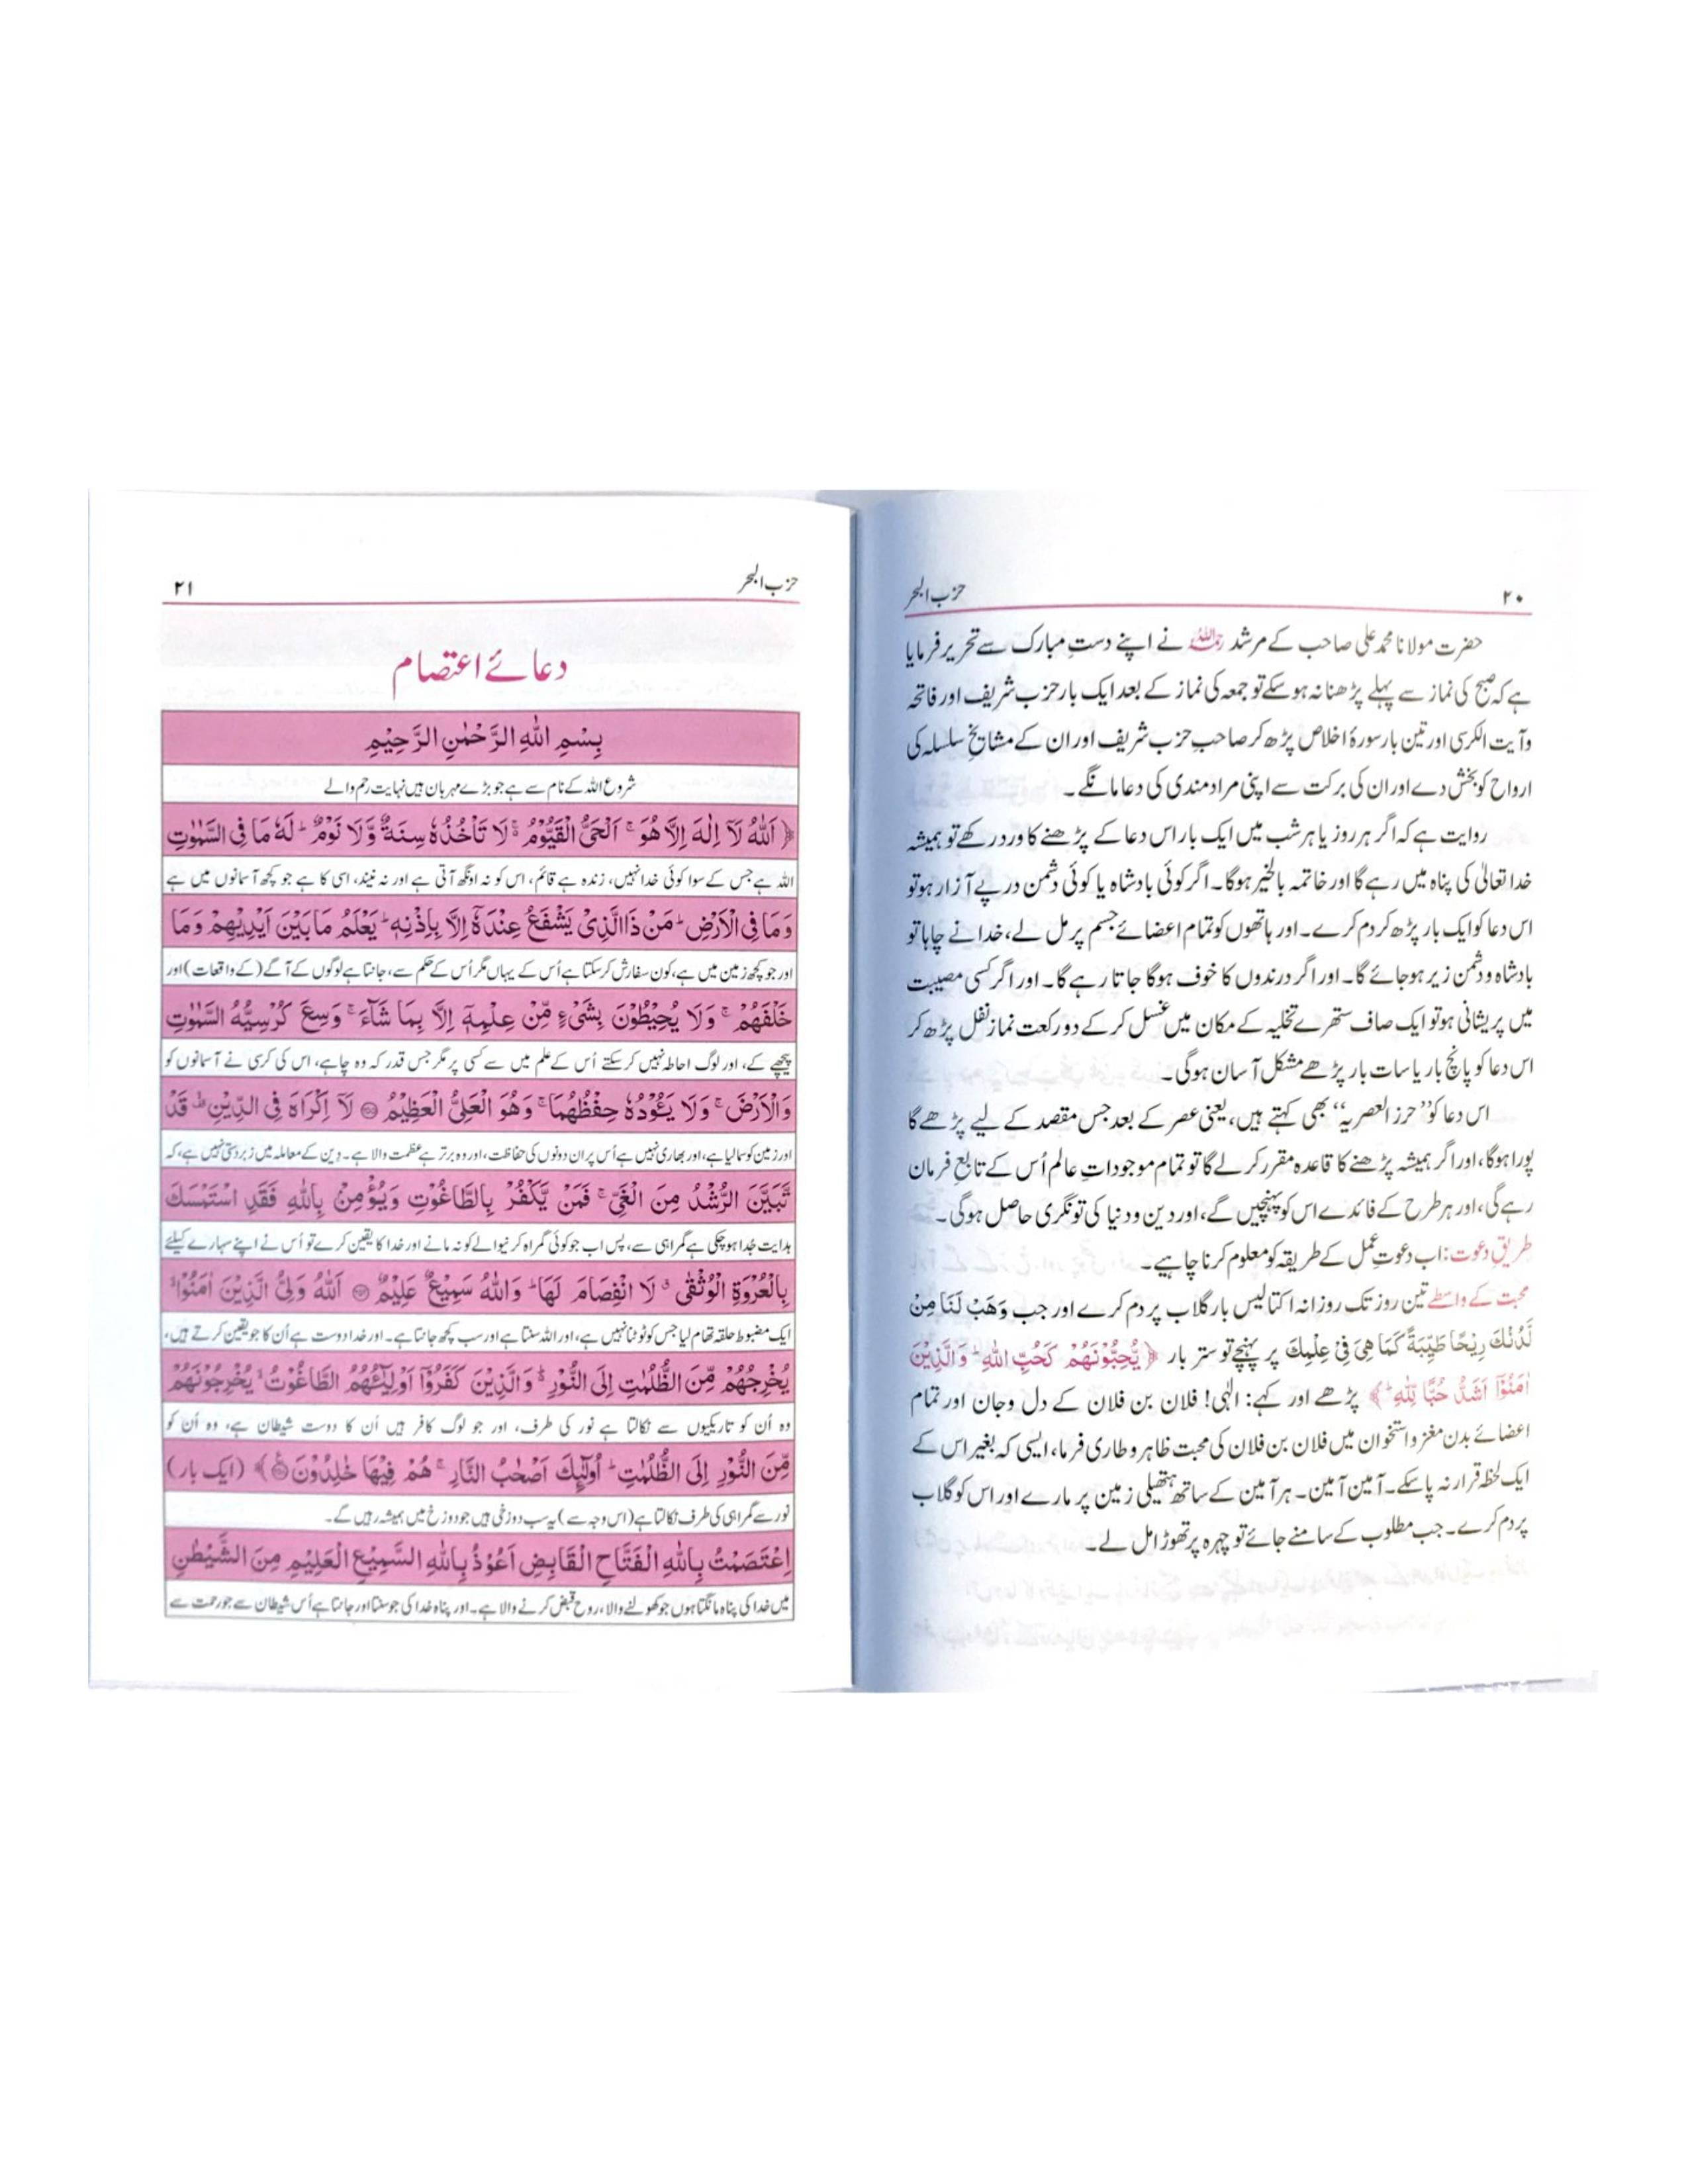 ۲۰
حزب البحر
حضرت مولانا محمد علی صاحب کے مرشد رحمہ اللہ نے اپنے دستِ مبارک سے تحریر فرمایا
ہے کہ صبح کی نماز سے پہلے پڑھنا نہ ہو سکے تو جمعہ کی نماز کے بعد ایک بار حزب شریف اور فاتحہ
وآیت الکرسی اور تین بار سورۂ اخلاص پڑھ کر صاحبِ حزب شریف اور ان کے مشایخِ سلسلہ کی
ارواح کو بخش دے اور ان کی برکت سے اپنی مرادمندی کی دعا مانگے۔
روایت ہے کہ اگر ہر روز یا ہر شب میں ایک بار اس دعا کے پڑھنے کا ورد رکھے تو ہمیشہ
خدا تعالیٰ کی پناہ میں رہے گا اور خاتمہ بالخیر ہوگا۔ اگر کوئی بادشاہ یا کوئی دشمن درپے آزار ہو تو
اس دعا کو ایک بار پڑھ کر دم کرے۔ اور ہاتھوں کو تمام اعضائے جسم پر مل لے، خدا نے چاہا تو
بادشاہ و دشمن زیر ہو جائے گا۔ اور اگر درندوں کا خوف ہوگا جاتا رہے گا۔ اور اگر کسی مصیبت
میں پریشانی ہو تو ایک صاف ستھرے تخلیہ کے مکان میں غسل کر کے دو رکعت نماز نفل پڑھ کر
اس دعا کو پانچ بار یا سات بار پڑھے مشکل آسان ہوگی۔
اس دعا کو ’’حرز العصریہ‘‘ بھی کہتے ہیں، یعنی عصر کے بعد جس مقصد کے لیے پڑھے گا
پورا ہوگا، اور اگر ہمیشہ پڑھنے کا قاعدہ مقرر کر لے گا تو تمام موجوداتِ عالم اُس کے تابعِ فرمان
رہے گی، اور ہر طرح کے فائدے اس کو پہنچیں گے، اور دین و دنیا کی تونگری حاصل ہوگی۔
طریقِ دعوت: اب دعوتِ عمل کے طریقہ کو معلوم کرنا چاہیے۔
محبت کے واسطے تین روز تک روزانہ اکتالیس بار گلاب پر دم کرے اور جب وَهَبْ لَنَا مِنْ
لَّدُنْكَ رِيْحًا طَيِّبَةً كَمَا هِيَ فِيْ عِلْمِكَ پر پہنچے تو ستر بار ﴿يُّحِبُّوْنَهُمْ كَحُبِّ اللّٰهِ ؕ وَالَّذِيْنَ
اٰمَنُوْٓا اَشَدُّ حُبًّا لِّلّٰهِ ؕ﴾ پڑھے اور کہے: الٰہی! فلان بن فلان کے دل و جان اور تمام
اعضائے بدن مغز و استخوان میں فلان بن فلان کی محبت ظاہر و طاری فرما، ایسی کہ بغیر اس کے
ایک لحظہ قرار نہ پا سکے۔ آمین آمین۔ ہر آمین کے ساتھ ہتھیلی زمین پر مارے اور اس کو گلاب
پر دم کرے۔ جب مطلوب کے سامنے جائے تو چہرہ پر تھوڑا مل لے۔
حزب البحر
۲۱
دعائے اعتصام
بِسْمِ اللّٰهِ الرَّحْمٰنِ الرَّحِيْمِ
شروع اللہ کے نام سے ہے جو بڑے مہربان ہیں نہایت رحم والے
﴿اَللّٰهُ لَآ اِلٰهَ اِلَّا هُوَ ۚ اَلْحَيُّ الْقَيُّوْمُ ۚ لَا تَاْخُذُهٗ سِنَةٌ وَّلَا نَوْمٌ ؕ لَهٗ مَا فِي السَّمٰوٰتِ
اللہ ہے جس کے سوا کوئی خدا نہیں، زندہ ہے قائم، اس کو نہ اونگھ آتی ہے اور نہ نیند، اسی کا ہے جو کچھ آسمانوں میں ہے
وَمَا فِي الْاَرْضِ ؕ مَنْ ذَا الَّذِيْ يَشْفَعُ عِنْدَهٗٓ اِلَّا بِاِذْنِهٖ ؕ يَعْلَمُ مَا بَيْنَ اَيْدِيْهِمْ وَمَا
اور جو کچھ زمین میں ہے، کون سفارش کر سکتا ہے اُس کے یہاں مگر اُس کے حکم سے، جانتا ہے لوگوں کے آگے (کے واقعات) اور
خَلْفَهُمْ ۚ وَلَا يُحِيْطُوْنَ بِشَيْءٍ مِّنْ عِلْمِهٖٓ اِلَّا بِمَا شَآءَ ۚ وَسِعَ كُرْسِيُّهُ السَّمٰوٰتِ
پیچھے کے، اور لوگ احاطہ نہیں کر سکتے اُس کے علم میں سے کسی پر مگر جس قدر کہ وہ چاہے، اس کی کرسی نے آسمانوں کو
وَالْاَرْضَ ۚ وَلَا يَـُٔوْدُهٗ حِفْظُهُمَا ۚ وَهُوَ الْعَلِيُّ الْعَظِيْمُ ۝ لَآ اِكْرَاهَ فِي الدِّيْنِ ۙ قَدْ
اور زمین کو سما لیا ہے، اور بھاری نہیں ہے اُس پر ان دونوں کی حفاظت، اور وہ برتر ہے عظمت والا ہے۔ دین کے معاملہ میں زبردستی نہیں ہے، کہ
تَّبَيَّنَ الرُّشْدُ مِنَ الْغَيِّ ۚ فَمَنْ يَّكْفُرْ بِالطَّاغُوْتِ وَيُؤْمِنْۢ بِاللّٰهِ فَقَدِ اسْتَمْسَكَ
ہدایت جُدا ہو چکی ہے گمراہی سے، پس اب جو کوئی گمراہ کرنیوالے کو نہ مانے اور خدا کا یقین کرے تو اُس نے اپنے سہارے کیلئے
بِالْعُرْوَةِ الْوُثْقٰى ۗ لَا انْفِصَامَ لَهَا ؕ وَاللّٰهُ سَمِيْعٌ عَلِيْمٌ ۝ اَللّٰهُ وَلِيُّ الَّذِيْنَ اٰمَنُوْا ۙ
ایک مضبوط حلقہ تھام لیا جس کو ٹوٹنا نہیں ہے، اور اللہ سنتا ہے اور سب کچھ جانتا ہے۔ اور خدا دوست ہے اُن کا جو یقین کرتے ہیں،
يُخْرِجُهُمْ مِّنَ الظُّلُمٰتِ اِلَى النُّوْرِ ؕ وَالَّذِيْنَ كَفَرُوْٓا اَوْلِيٰٓـُٔهُمُ الطَّاغُوْتُ ۙ يُخْرِجُوْنَهُمْ
وہ اُن کو تاریکیوں سے نکالتا ہے نور کی طرف، اور جو لوگ کافر ہیں اُن کا دوست شیطان ہے، وہ اُن کو
مِّنَ النُّوْرِ اِلَى الظُّلُمٰتِ ؕ اُولٰٓئِكَ اَصْحٰبُ النَّارِ ۚ هُمْ فِيْهَا خٰلِدُوْنَ ۝﴾ (ایک بار)
نور سے گمراہی کی طرف نکالتا ہے (اس وجہ سے) یہ سب دوزخی ہیں جو دوزخ میں ہمیشہ رہیں گے۔
اِعْتَصَمْتُ بِاللّٰهِ الْفَتَّاحِ الْقَابِضِ اَعُوْذُ بِاللّٰهِ السَّمِيْعِ الْعَلِيْمِ مِنَ الشَّيْطٰنِ
میں خدا کی پناہ مانگتا ہوں جو کھولنے والا، روح قبض کرنے والا ہے۔ اور پناہ خدا کی جو سنتا اور جانتا ہے اُس شیطان سے جو رحمت سے